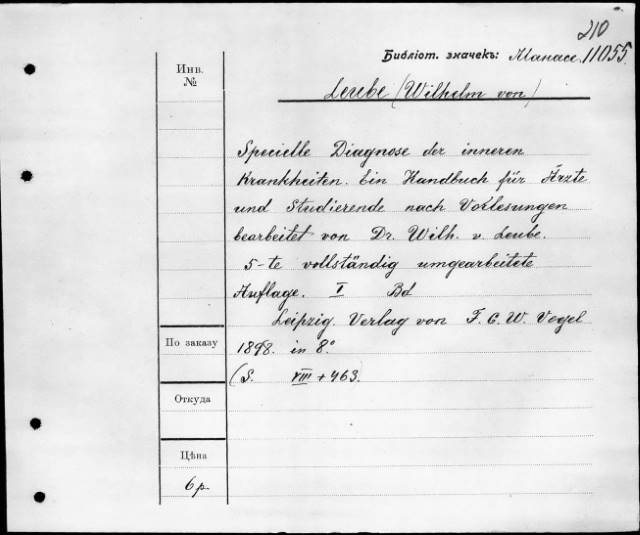 210
Библіот. значекъ: Manace. 11055.
Инв.
№
Leube (Wilhelm von)
Specielle Diagnose der inneren
Krankheiten. Ein Handbuch für Ärzte
und Studierende nach Vorlesungen
bearbeitet von Dr. Wilh. v. Leube.
5-te vollständig umgearbeitete
Auflage. I Bd
Leipzig. Verlag von F. C. W. Vogel
По заказу
1898. in 8°.
(S. VIII + 463)
Откуда
Цѣна
6 р.